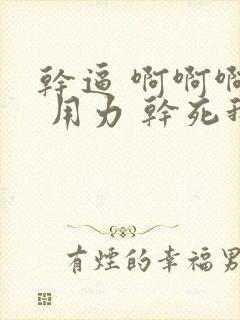 幹逼 啊啊啊
用力 幹死我
有煙的幸福男